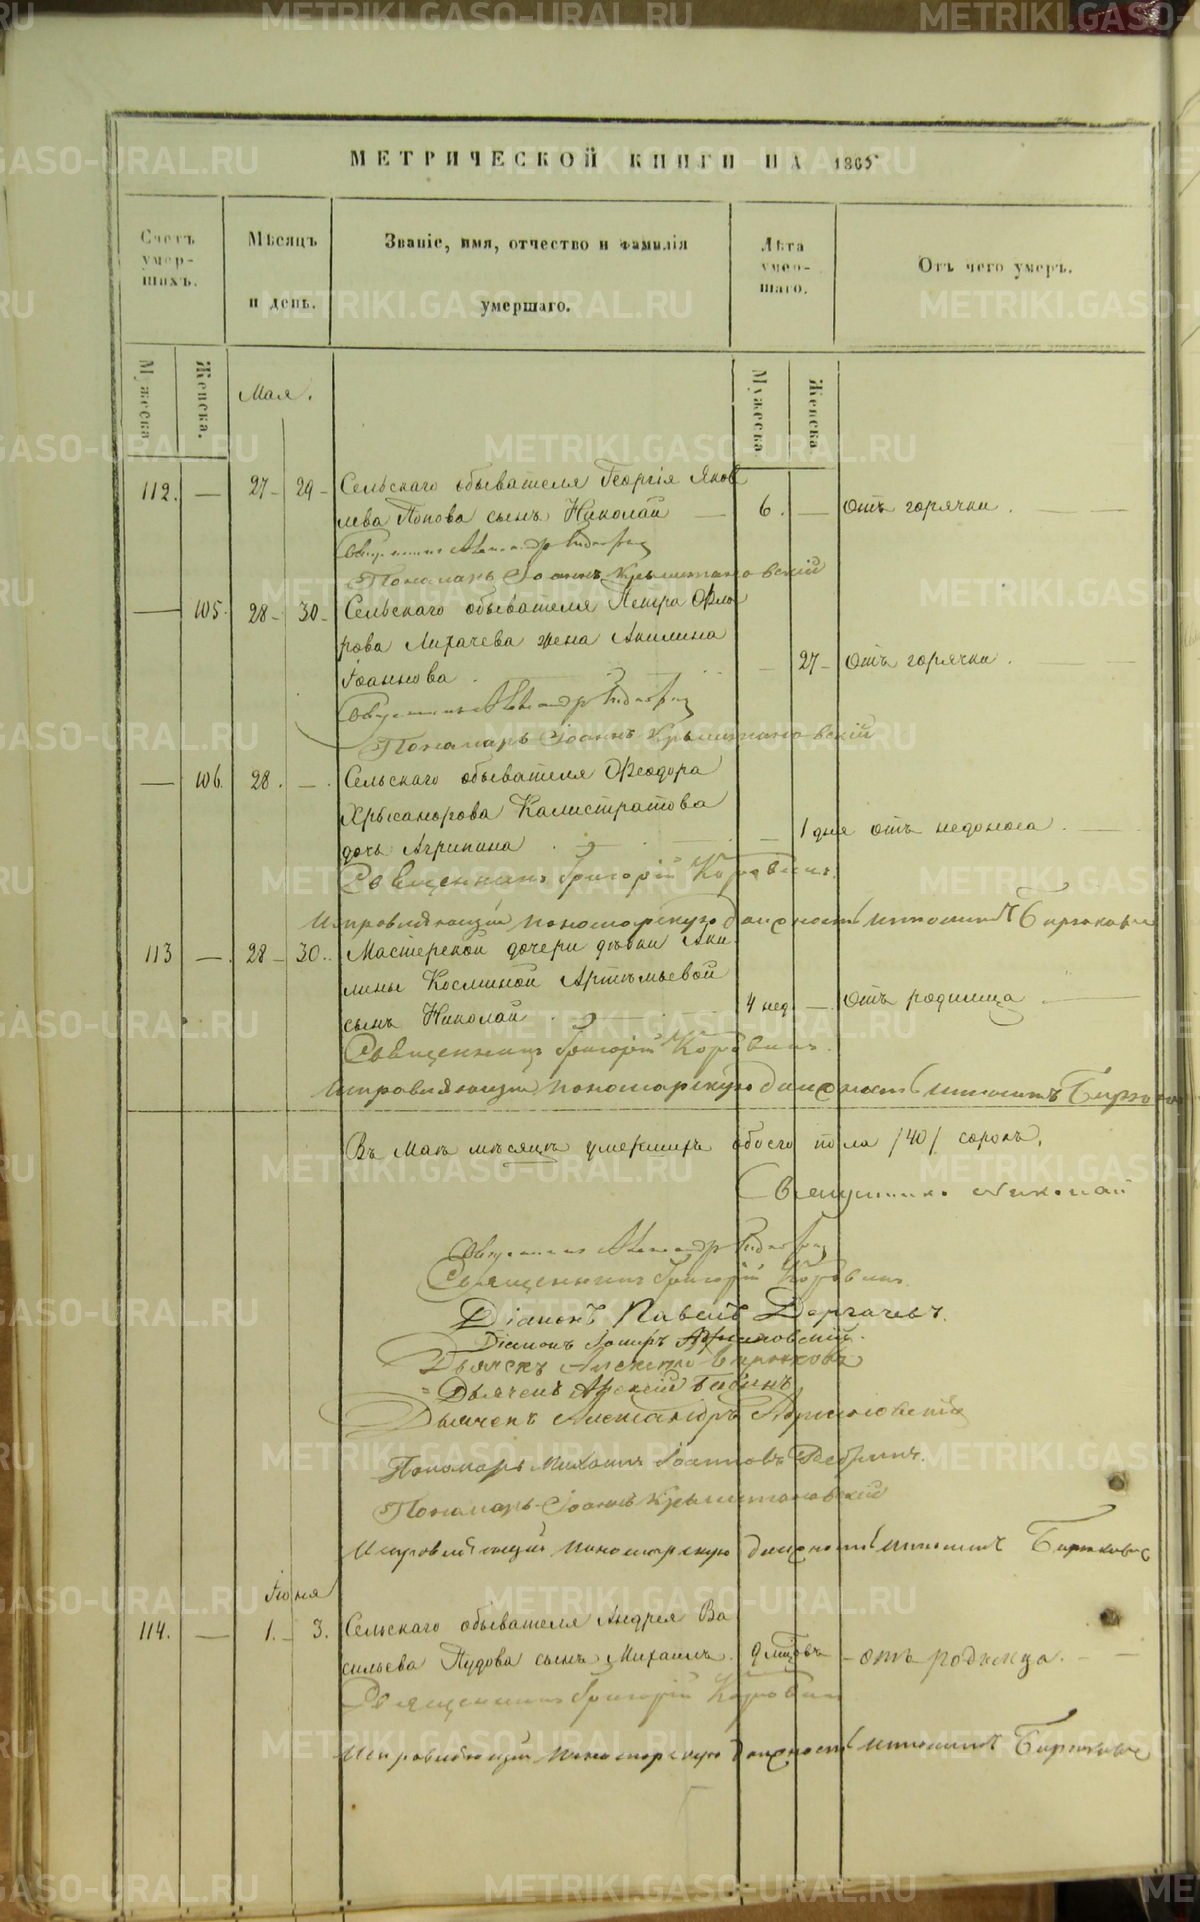 МЕТРИЧЕСКОЙ КНИГИ НА 1865
Счетъ умер-шихъ.
Мѣсяцъ и день.
Званіе, имя, отчество и фамилія умершаго.
Лѣта умер-шаго.
Отъ чего умеръ.
Мужеска
Женска.
Мая.
Мужеска
Женска
112. — 27 – 29 – Сельскаго обывателя Георгія Яков
лева Попова сынъ Николай — 6. — Отъ горячки.
Священникъ Александръ
Пономарь Іоаннъ Крыжановскій
— 105. 28 – 30 – Сельскаго обывателя Петра Фло
рова Лихачева жена Акилина
Іоаннова. — 27 – Отъ горячки.
Священникъ Александръ
Пономарь Іоаннъ Крыжановскій
— 106. 28. —. Сельскаго обывателя Феодора
Хрысанфова Калистратова
дочь Агрипина — 1 дня отъ недоноса.
Священникъ Григорій Коровинъ.
Исправляющій пономарскую должность Бирюковъ
113 —. 28 – 30.. Мастерской дочери дѣвки Аки
лины Косминой Артѣмьевой
сынъ Николай. 4 нед. — Отъ родимца
Священникъ Григорій Коровинъ.
Исправляющій пономарскую должность
Въ Маѣ мѣсяцѣ умершихъ обоего пола /40/ сорокъ.
Священникъ Николай
Священникъ Александръ
Священникъ Григорій Коровинъ.
Діаконъ Павелъ Дергачевъ.
Діаконъ
Дьячекъ Алексѣй Бирюковъ
Дьячекъ Бабинъ
Дьячекъ Александръ
Пономарь Михаилъ Іоанновъ
Пономарь Іоаннъ Крыжановскій
Исправляющій пономарскую должность Бирюковъ
Іюня
114. — 1. – 3. Сельскаго обывателя Андрея Ва
сильева Пудова сынъ Михаилъ. 9 мцовъ – отъ родимца.
Священникъ Григорій Коровинъ
Исправляющій пономарскую должность Бирюковъ
METRIKI.GASO-URAL.RU